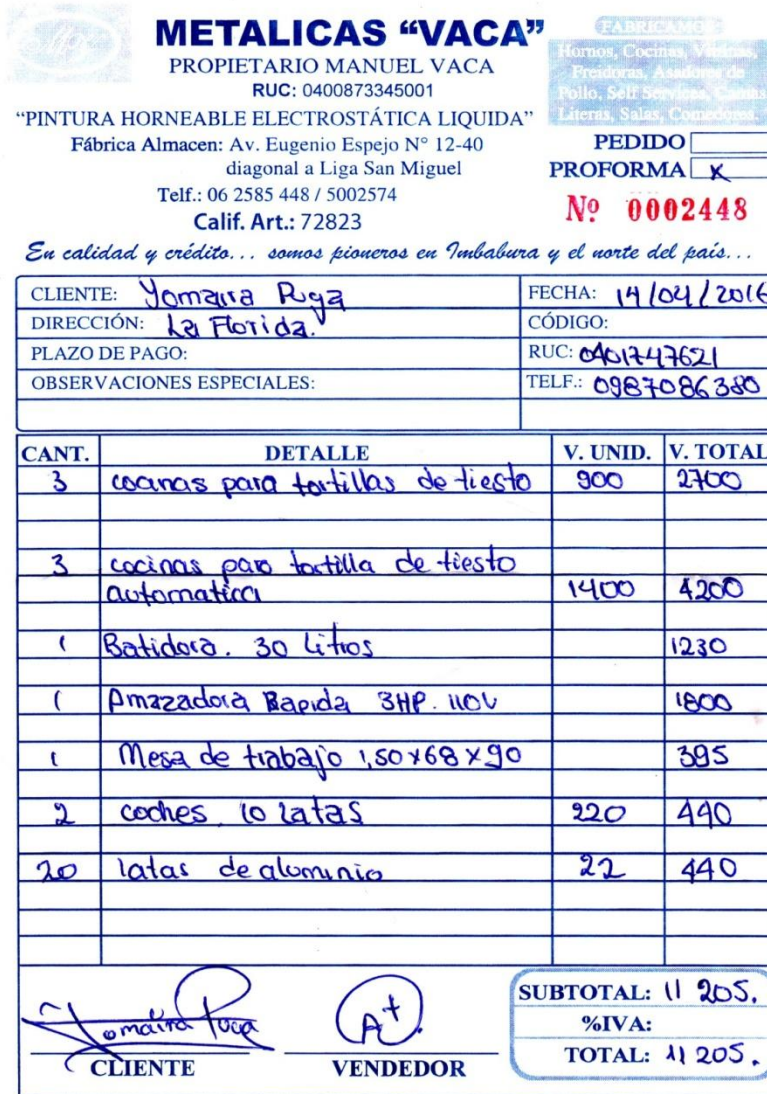 METALICAS “VACA”
PROPIETARIO MANUEL VACA
RUC: 0400873345001
“PINTURA HORNEABLE ELECTROSTÁTICA LIQUIDA”
Fábrica Almacen: Av. Eugenio Espejo N° 12-40
diagonal a Liga San Miguel
Telf.: 06 2585 448 / 5002574
Calif. Art.: 72823
FABRICAMOS
Hornos, Cocinas, Vitrinas,
Freidoras, Asadores de
Pollo, Self Services, Camas
Literas, Salas, Comedores.
PEDIDO
PROFORMA X
Nº 0002448
En calidad y crédito... somos pioneros en Imbabura y el norte del país...
CLIENTE: Yomaira Puga FECHA: 14/04/2016
DIRECCIÓN: La Florida. CÓDIGO:
PLAZO DE PAGO: RUC: 0401747621
OBSERVACIONES ESPECIALES: TELF.: 0987086380
CANT. DETALLE V. UNID. V. TOTAL
3 cocinas para tortillas de tiesto 900 2700
3 cocinas para tortilla de tiesto
automatica 1400 4200
1 Batidora. 30 Litros 1230
1 Amazadora Rapida 3HP. 110V 1800
1 Mesa de trabajo 1,50x68x90 395
2 coches 10 latas 220 440
20 latas de aluminio 22 440
SUBTOTAL: 11 205.
%IVA:
TOTAL: 11 205.
Yomaira Puga A+.
CLIENTE VENDEDOR